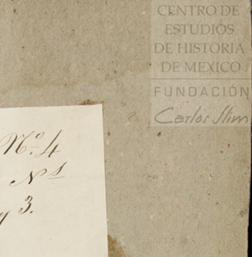 CENTRO DE
ESTUDIOS
DE HISTORIA
DE MEXICO
FUNDACIÓN
Carlos Slim
Nº. 4
Nº 1
y 3.